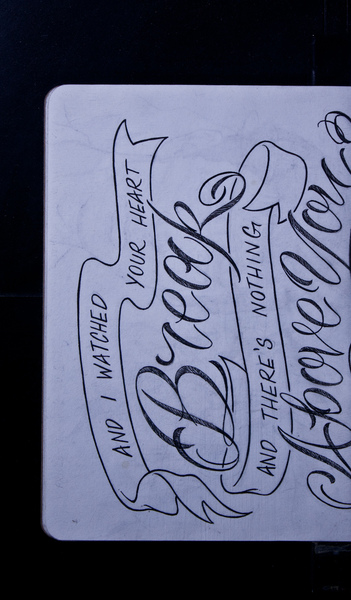 AND I WATCHED YOUR HEART
Break
AND THERE'S NOTHING
Above You